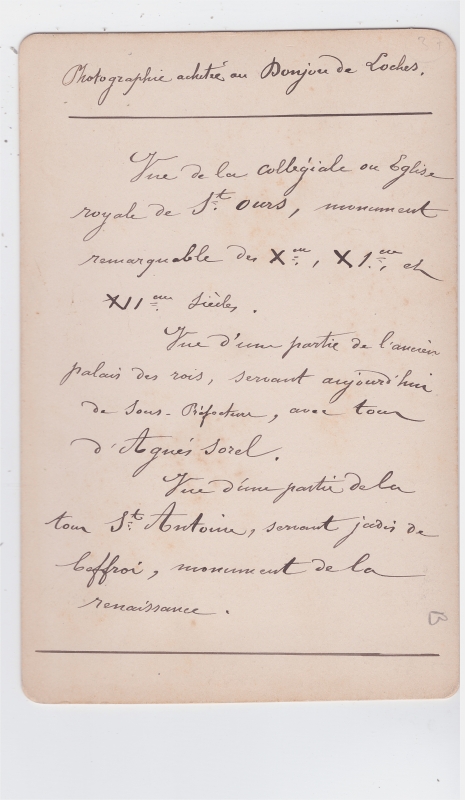 Photographie achetée au Donjon de Loches.
Vue de la collégiale ou Eglise
royale de St. Ours, monument
remarquable des Xème, XIème, et
XIIème siècles.
Vue d'une partie de l'ancien
palais des rois, servant aujourd'hui
de Sous-Préfecture, avec tour
d'Agnès Sorel.
Vue d'une partie de la
tour St. Antoine, servant jadis de
beffroi, monument de la
renaissance.
B